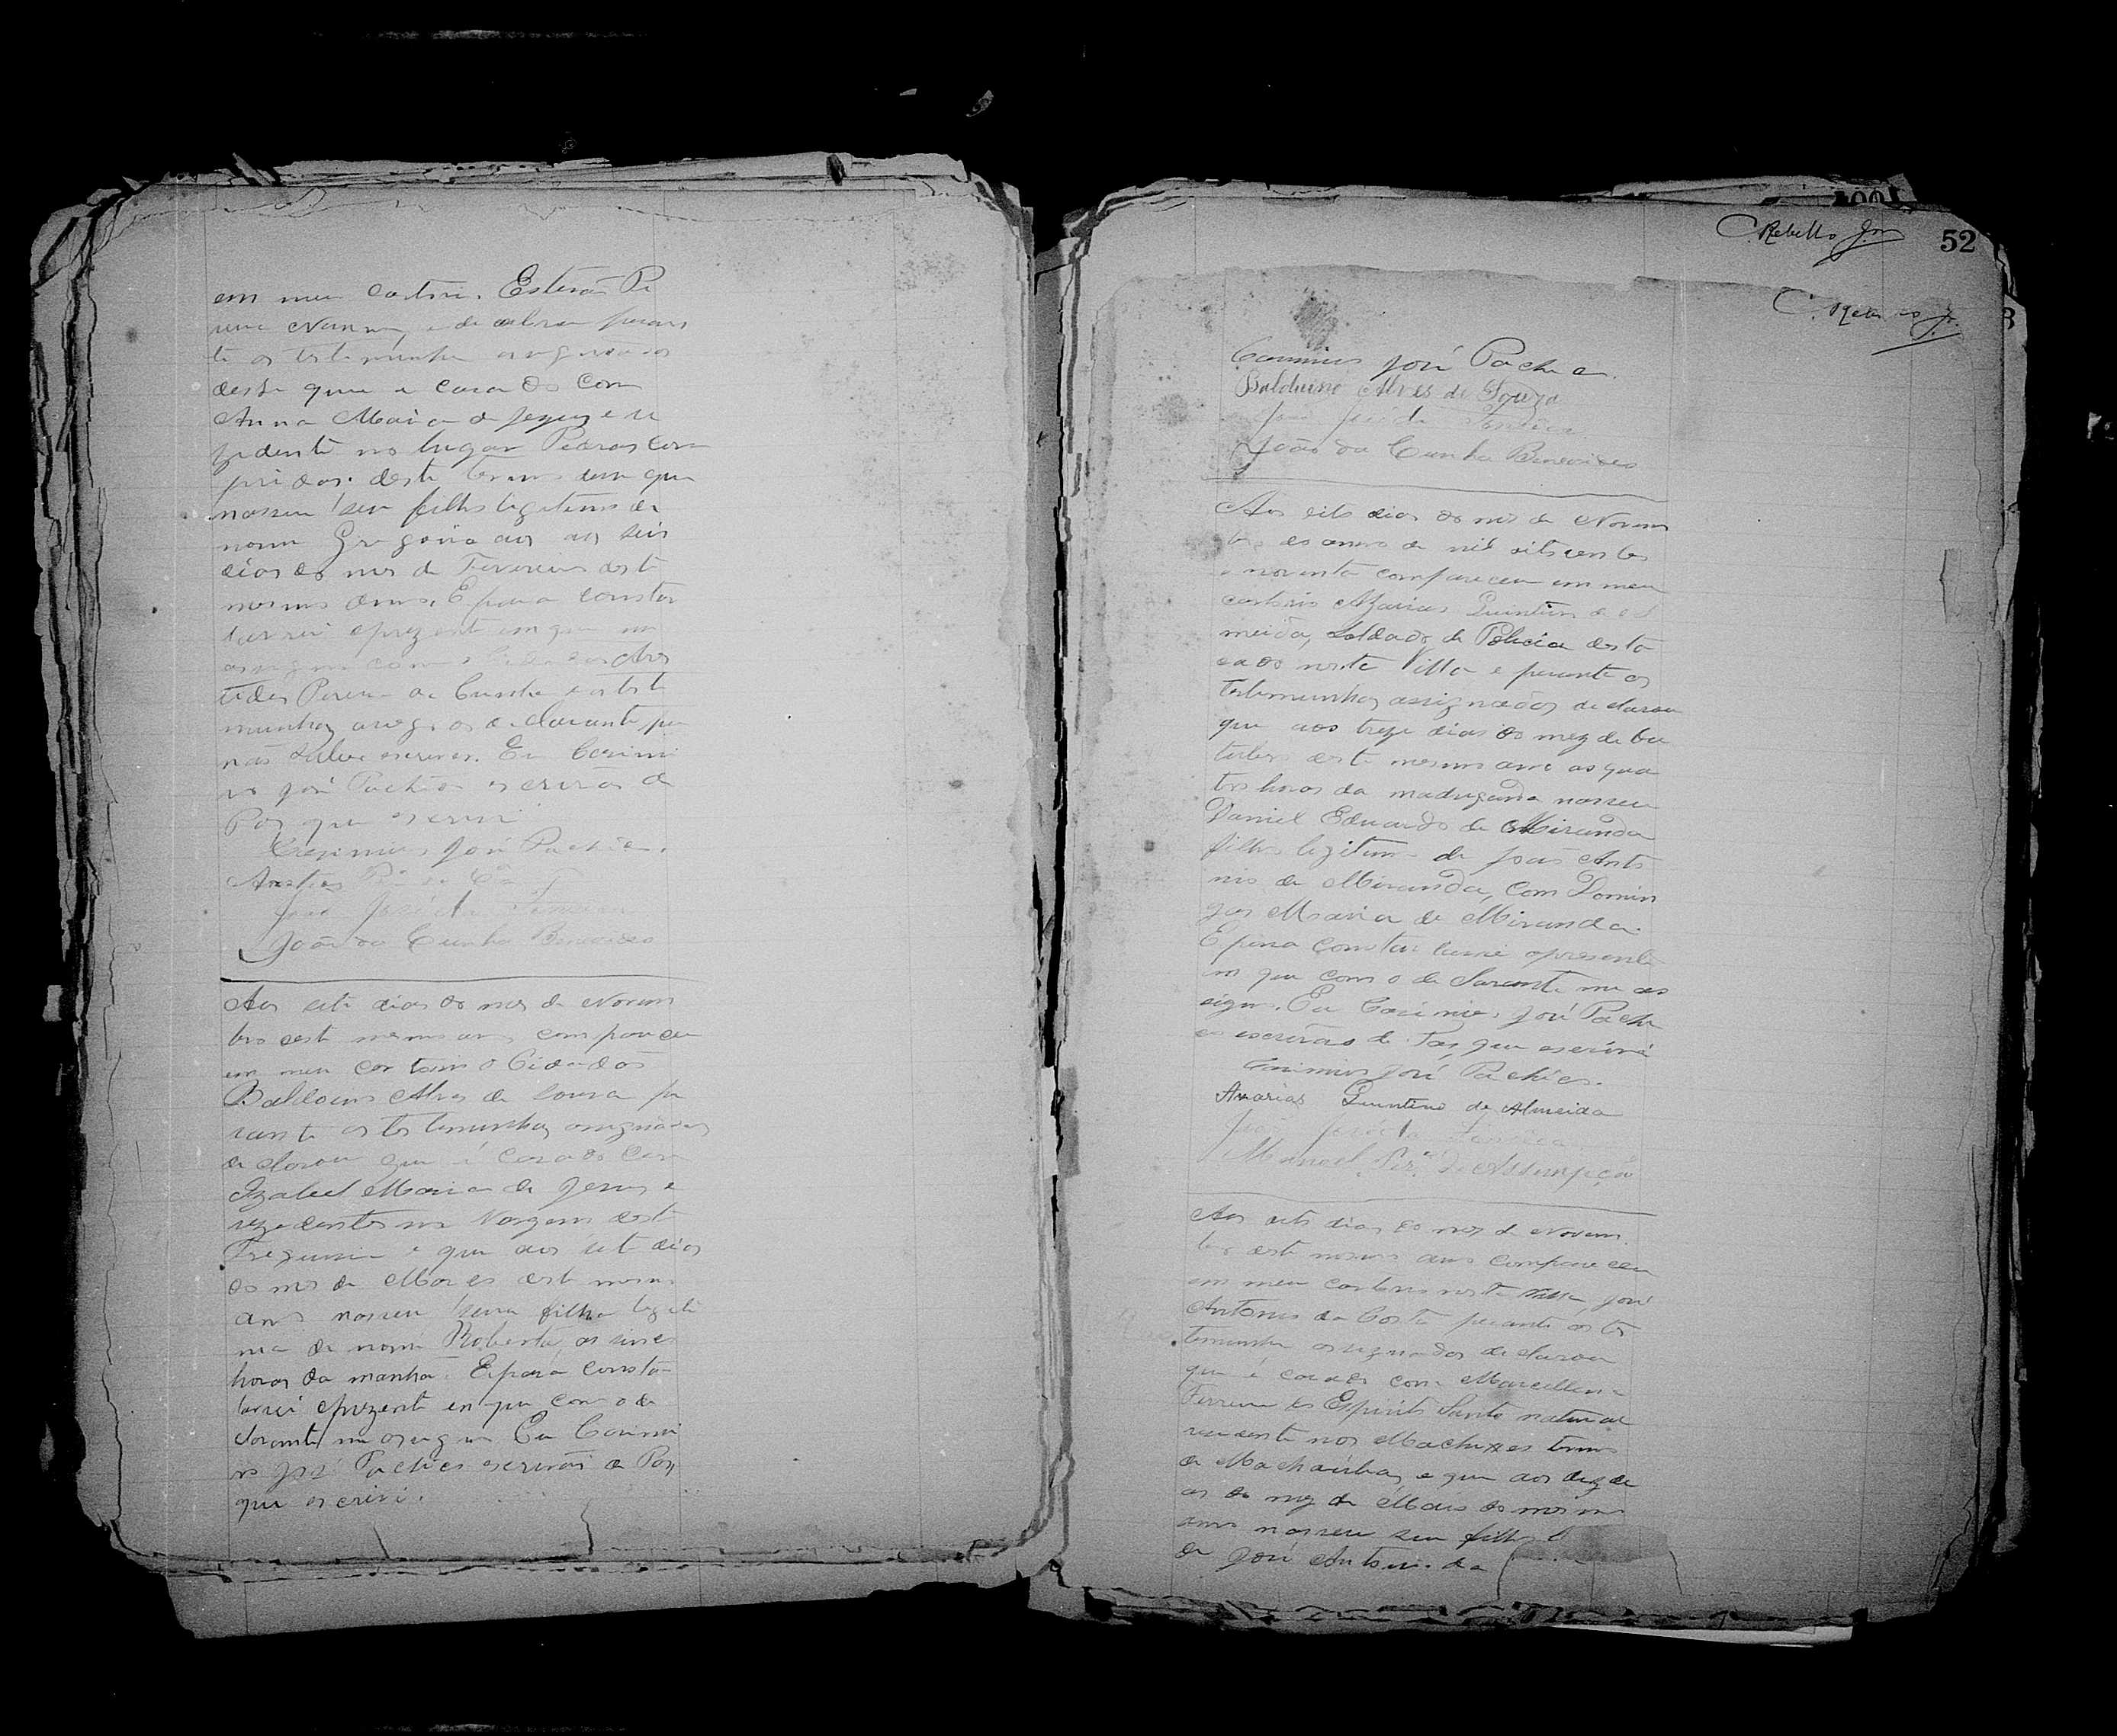 em meu cartori. Estevão Pe
reira Nunes, e declarou peran
te as testemunha asignados
deste que e casado com
Anna Maria de Jezus e re
zidente no lugar Pedras Com
pridas deste termo dise que
nasseu seu filho legitimo de
nome Gregorio aos seis
dias do mes de Fevereiro deste
mesmo anno. E para constar
lavrei o prezente em que me
asigno com
tides Pereira da Cunha e as teste
munhas arogo do declarante por
não saber escrever. Eu Casimi
ro José Pacheco escrivão de
Paz que escrevi
Casimiro José Pacheco.
João José da Fonseca
João da Cunha Benevides
Aos sete dias do mes de Novem
bro deste mesmo anno compareceu
em meu cartorio o Cidadão
Baldoino Alves de Souza pe
rante as testemunhas asignadas
declarou que é casado com
Izabel Maria de Jesus e
rezedentes na Vargem desta
Freguesia e que aos sete dias
do mes de Março deste mesmo
anno nasseu sua filha legiti
ma de nome Roberta, as cinco
horas da manhã. E para consta
lavrei o prezente em que com o de
clarante me asigno Eu Casimi
ro José Pacheco escrivão de Paz
que escrivi.
C. Rebello Jr. 52
C. Rebello Jr.
Casimiro José Pacheco.
Balduino Alves de Souza
João José da Fonseca
João da Cunha Benevides
Aos oito dias do mês de Novem
bro do anno de mil oitocentos
e noventa compareceu em meu
cartorio Azarias Quintino de Al
meida, Soldado de Policia desta
cado nesta Villa e perante as
testemunhas assignadas declarou
que aos treze dias do mez de Ou
tubro deste mesmo anno as qua
tro horas da madrugada nasseu
Daniel Eduardo de Miranda
filho legitimo de João Anto
nio de Miranda, com Domin
gas Maria de Miranda.
E para constar lavrei o presente
em que com o declarante me as
signo. Eu Casimiro José Pache
co escrivão de Paz, que escriví
Casimiro José Pacheco.
Anarias Quintino de Almeida
João José da Fonseca
Manoel Perª de Assumpção
Aos oito dias do mez de Novem
bro deste mesmo anno compareceu
em meu cartorio nesta Villa José
Antonio da Costa perante as tes
temunha asignados declarou
que é casado com Marcellina
Ferreira do Espirito Santo natural
rezidente nos Machados termo
de Machaúbas, e que aos dez di
as do mez de Maio do mesmo
anno nasseu seu filho
de José Antonio da